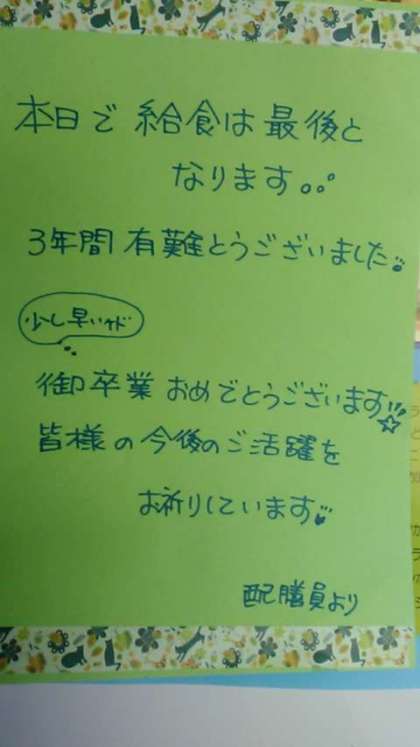 本日で給食は最後と
なります。。°
3年間有難とうございました
少し早いケド
御卒業おめでとうございます!!☆
皆様の今後のご活躍を
お祈りしています
配膳員より